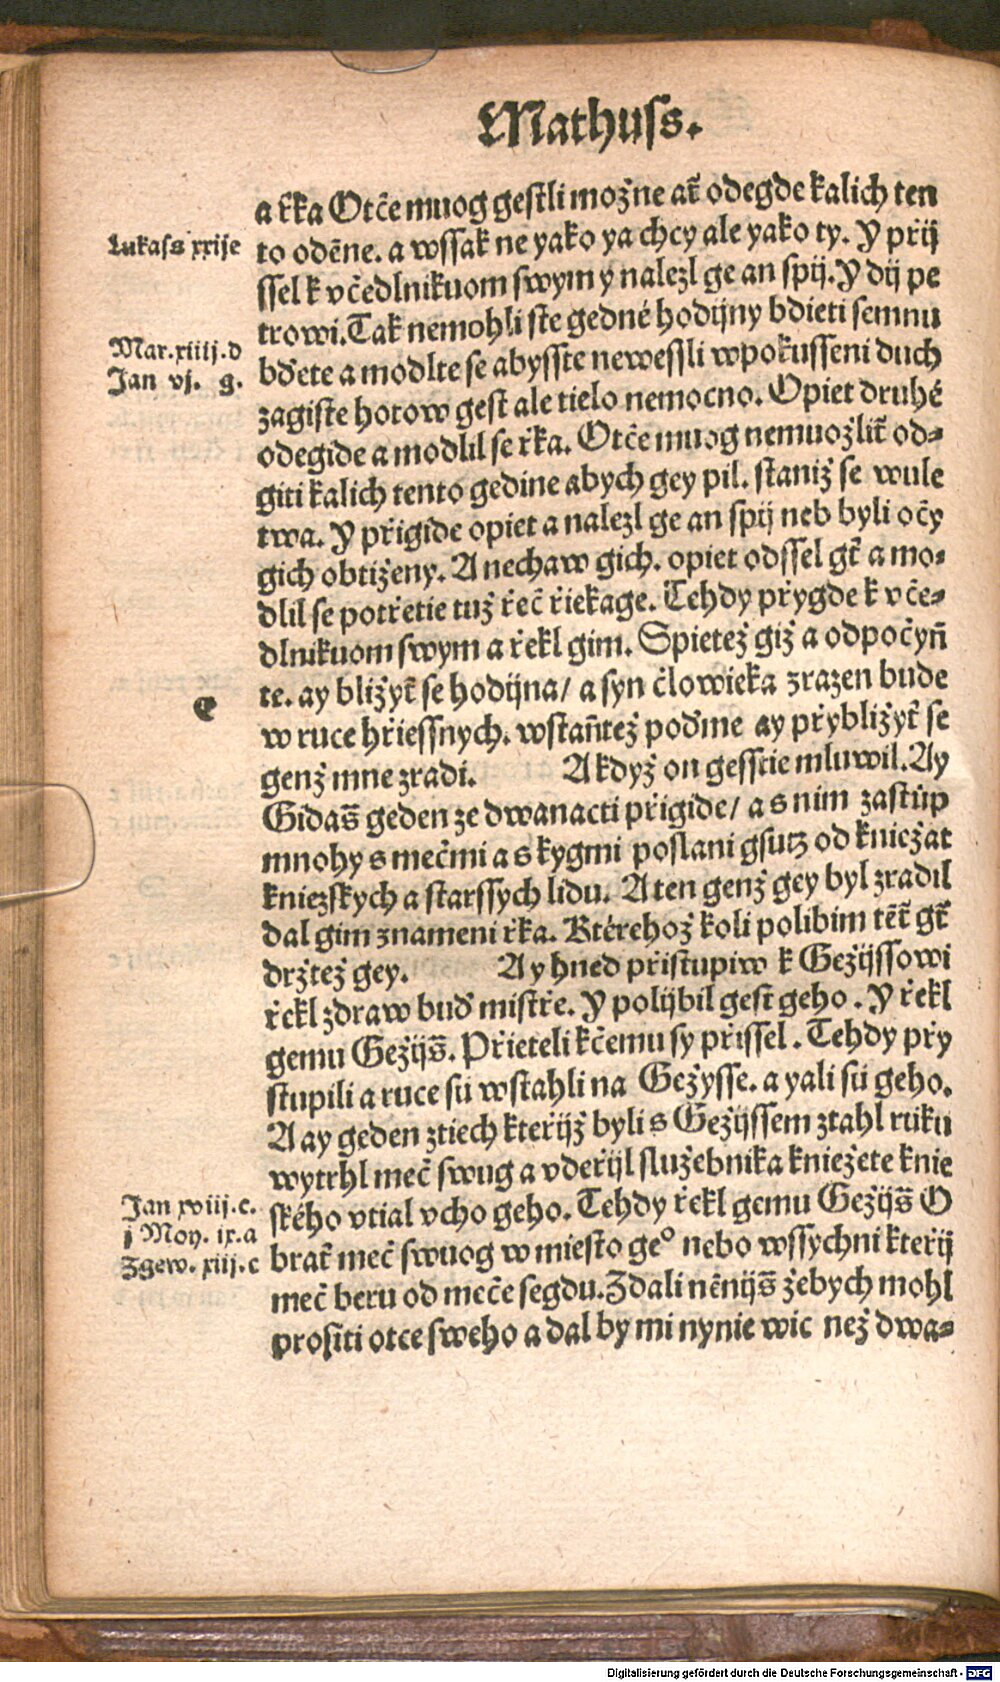 Mathuss.
a řka Otče muog gestli možne ať odegde kalich ten
Lukass xxije
to odēne. a wssak ne yako ya chcy ale yako ty. Y přij
ssel k včedlnikuom swym y nalezl ge an spij. Y dij pe
trowi. Tak nemohli ste gedné hodijny bdieti semnu
Mar. xiiij. d
Jan vj. g.
bďete a modlte se abysste newessli wpokusseni duch
zagiste hotow gest ale tielo nemocno. Opiet druhé
odegide a modlil se řka. Otče muog nemuožliť od-
giti kalich tento gedine abych gey pil. staniž se wule
twa. Y přigide opiet a nalezl ge an spij neb byli oči
gich obtiženy. A nechaw gich. opiet odssel gt̄ a mo-
dlil se potřetie tuž řeč řiekage. Tehdy přygde k vče-
dlnikuom swym a řekl gim. Spietež giž a odpočyň
te. ay bližyť se hodijna/ a syn človieka zrazen bude
e
w ruce hřiessnych. wstaňtež poďme ay přybližyť se
genž mne zradi. A když on gesstie mluwil. Ay
Gidas̄ geden ze dwanacti přigide/ a s nim zastup
mnohy s mečmi a s kygmi poslani gsutz od kniežat
kniezskych a starssych lidu. A ten genž gey byl zradil
dal gim znameni řka. Kteréhož koli polibim tēť gt̄
držtež gey. Ay hned přistupiw k Gežijssowi
řekl zdraw buď mistře. Y polijbil gest geho. Y řekl
gemu Gežijs̄. Přieteli kčemu sy přissel. Tehdy přy
stupili a ruce su wstahli na Gežysse. a yali sú geho.
A ay geden ztiech kteřijž byli s Gežijssem ztahl ruku
wytrhl meč swug a vdeřijl služebnika kniežete knie
Jan xviij. c.
ského vtial vcho geho. Tehdy řekl gemu Gežijs̄ O
j Moy. ix. a
brať meč swuog w miesto geº nebo wssychni kteřij
Zgew. xiij. c
meč beru od meče segdu. Zdali nēnijs̄ žebych mohl
prositi otce sweho a dal by mi nynie wic než dwa-
Digitalisierung gefördert durch die Deutsche Forschungsgemeinschaft - DFG